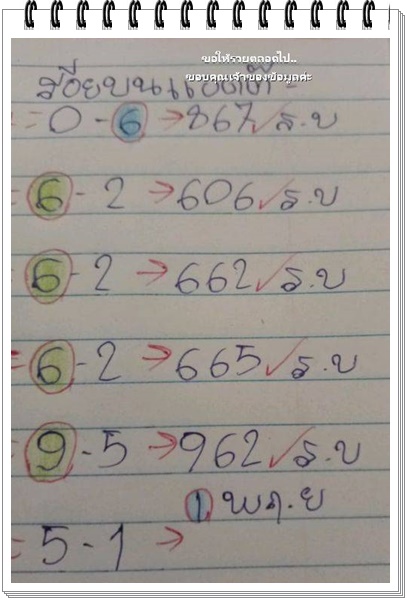 ขอให้รวยตลอดไป..
ขอบคุณเจ้าของข้อมูลค่ะ
= 0 - 6 → 867 ✓ ร.บ
= 6 - 2 → 606 ✓ ร.บ
= 6 - 2 → 662 ✓ ร.บ
= 6 - 2 → 665 ✓ ร.บ
= 9 - 5 → 962 ✓ ร.บ
1 พฤ.ย
= 5 - 1 →